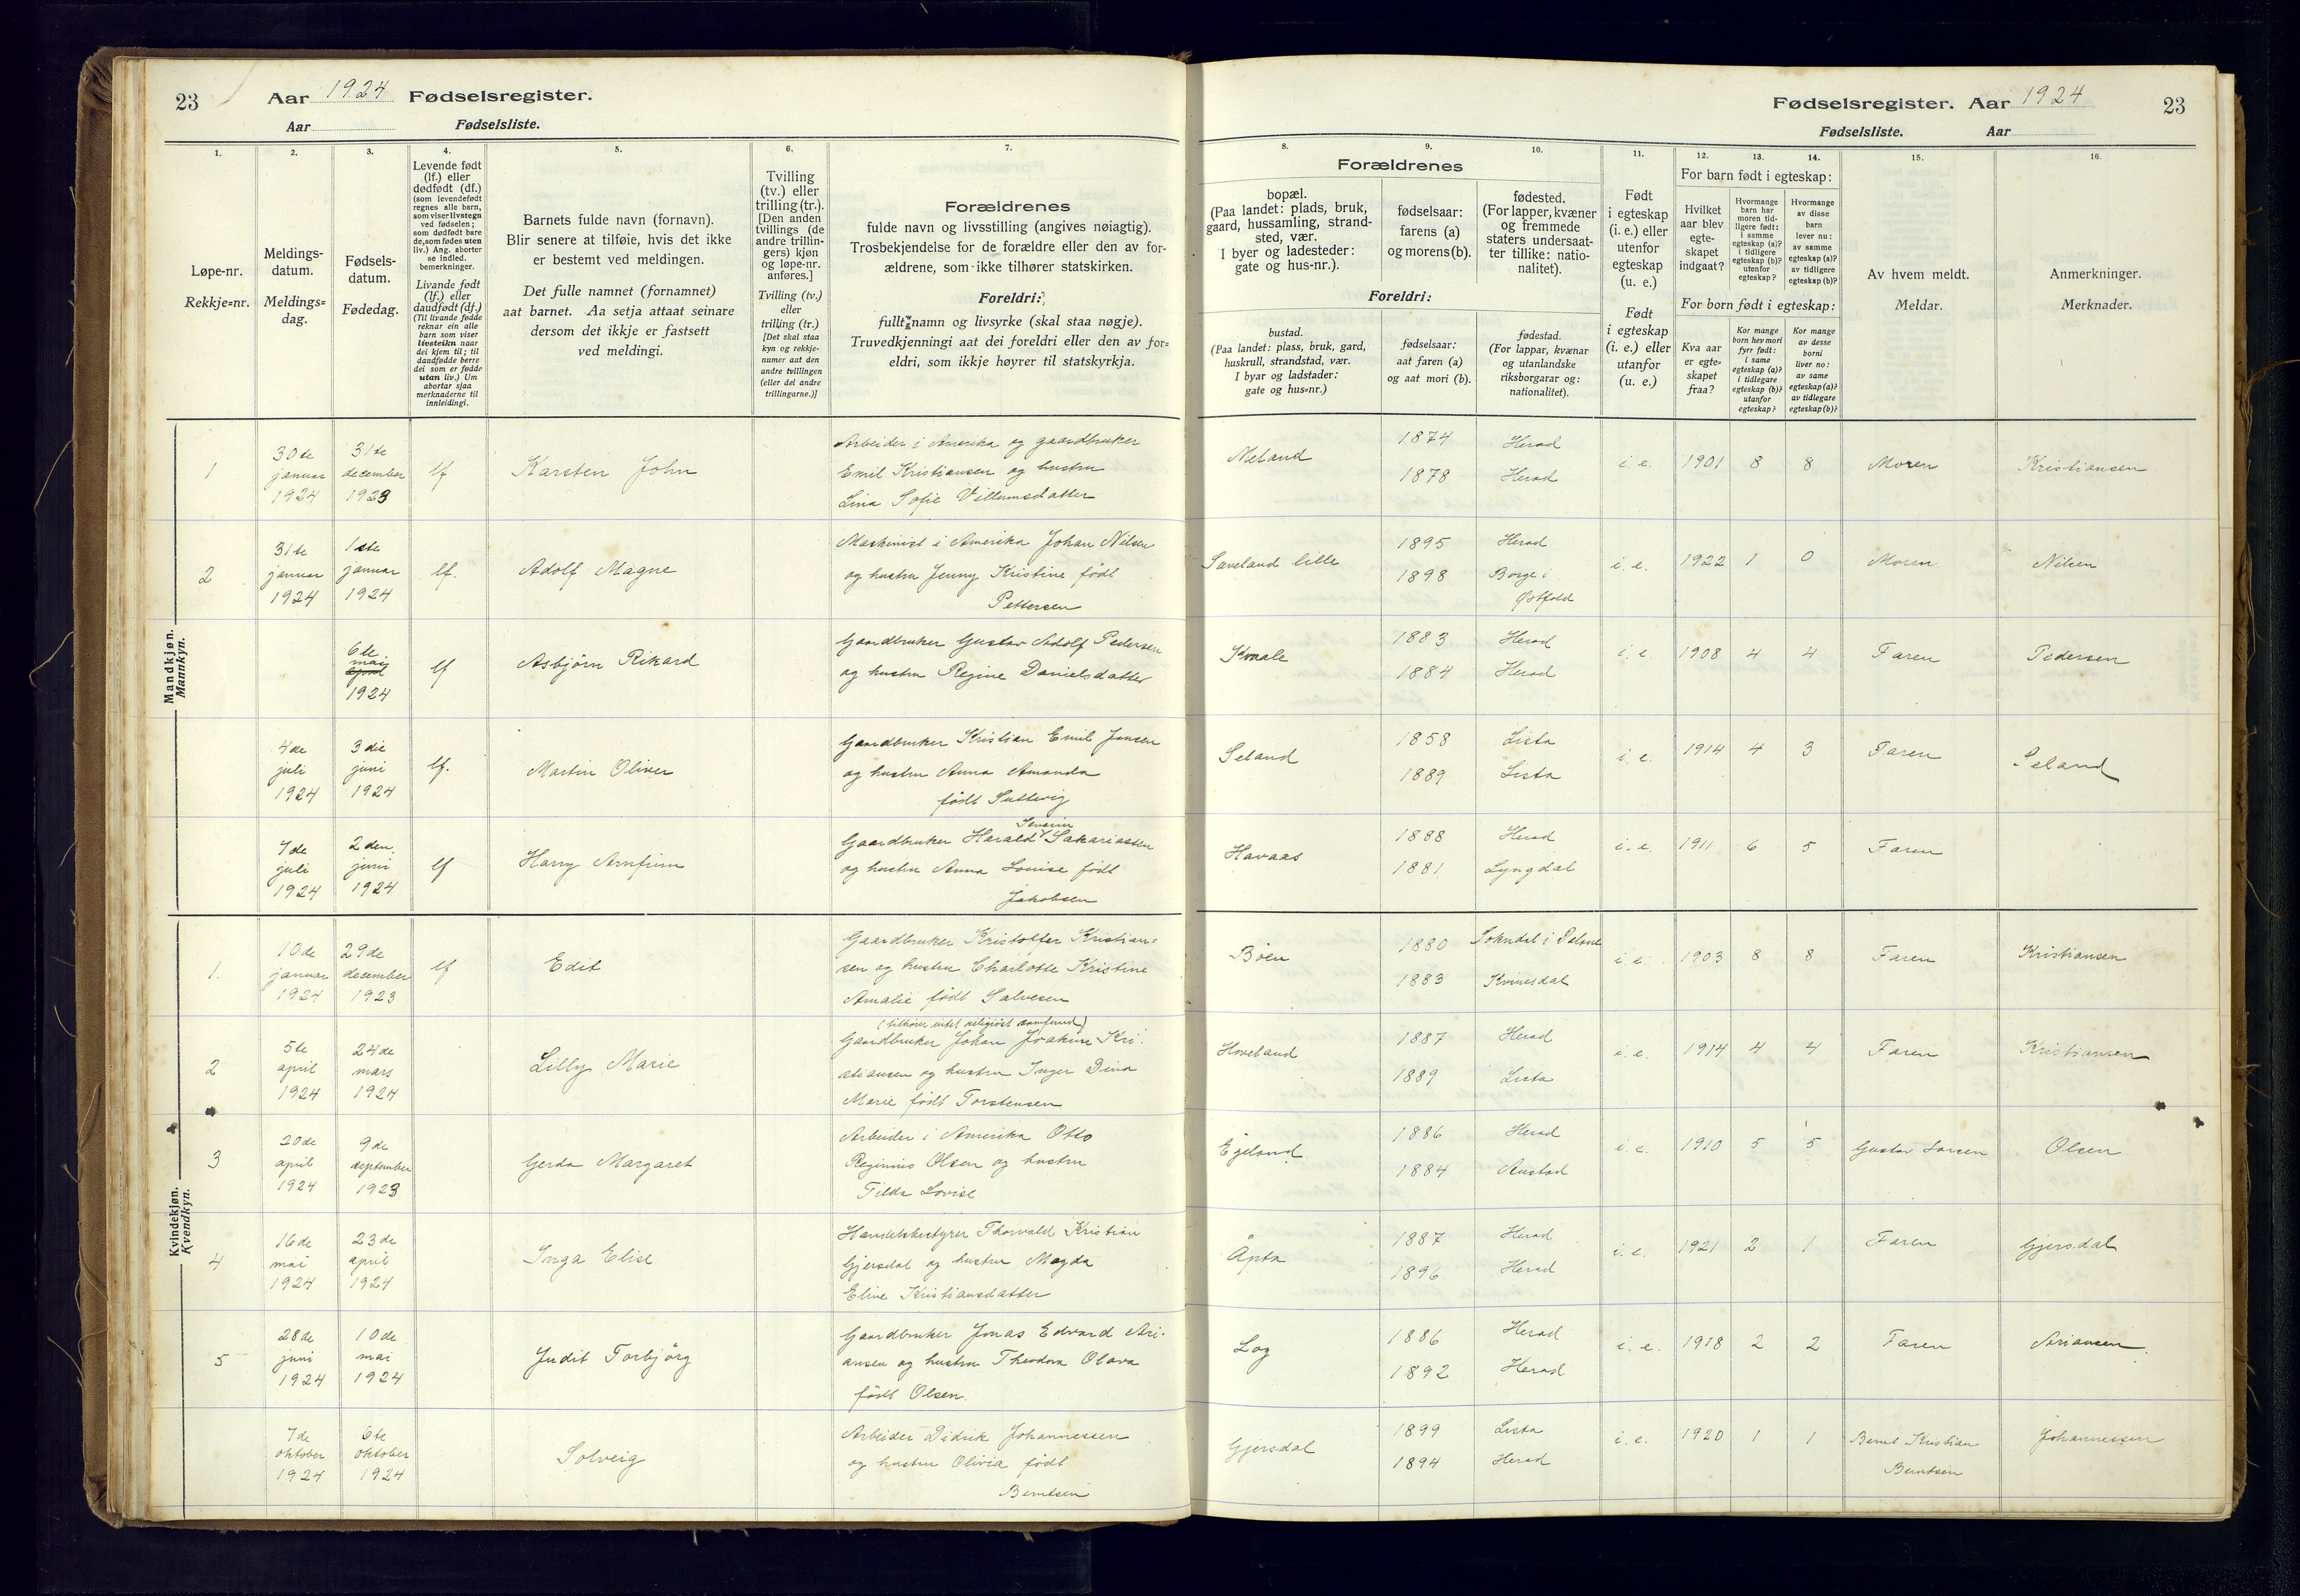 23
Aar 1924 Fødselsregister.
Aar Fødselsliste.
Fødselsregister. Aar 1924
23
Fødselsliste. Aar
1.
2.
3.
4.
5.
6.
7.
8.
9.
10.
11.
12.
13.
14.
15.
16.
Løpe-nr.
Rekkje=nr.
Meldings-
datum.
Meldings=
dag.
Fødsels-
datum.
Fødedag.
Levende født
(lf.) eller
dødfødt (df.)
(som levendefødt
regnes alle barn,
som viser livstegn
ved fødselen;
som dødfødt bare
de, som fødes uten
liv.) Ang. aborter
se indled.
bemerkninger.
Livande født
(lf.) eller
daudfødt (df.)
(Til livande fødde
reknar ein alle
barn som viser
livsteikn naar
dei kjem til; til
daudfødde berre
dei som er fødde
utan liv.) Um
abortar sjaa
merknaderne til
innleidingi.
Barnets fulde navn (fornavn).
Blir senere at tilføie, hvis det ikke
er bestemt ved meldingen.
Det fulle namnet (fornamnet)
aat barnet. Aa setja attaat seinare
dersom det ikkje er fastsett
ved meldingi.
Tvilling
(tv.) eller
trilling (tr.).
[Den anden
tvillings (de
andre trillin-
gers) kjøn
og løpe-nr.
anføres.]
Tvilling (tv.)
eller
trilling (tr.)
[Det skal staa
kyn og rekkje-
numer aat den
andre tvillingen
(eller dei andre
trillingarne.)]
Forældrenes
fulde navn og livsstilling (angives nøiagtig).
Trosbekjendelse for de forældre eller den av for-
ældrene, som ikke tilhører statskirken.
Foreldri:
fullt namn og livsyrke (skal staa nøgje).
Truvedkjenningi aat dei foreldri eller den av for=
eldri, som ikkje høyrer til statskyrkja.
Forældrenes
bopæl.
(Paa landet: plads, bruk,
gaard, hussamling, strand-
sted, vær.
I byer og ladesteder:
gate og hus-nr.).
fødselsaar:
farens (a)
og morens (b).
fødested.
(For lapper, kvæner
og fremmede
staters undersaat-
ter tillike: natio-
nalitet).
Foreldri:
bustad.
(Paa landet: plass, bruk, gard,
huskrull, strandstad, vær.
I byar og ladstader:
gate og hus=nr.)
fødselsaar:
aat faren (a)
og aat mori (b).
fødestad.
(For lappar, kvænar
og utanlandske
riksborgarar og:
nationalitet).
Født
i egteskap
(i. e.) eller
utenfor
egteskap
(u. e.)
Født
i egteskap
(i. e.) eller
utanfor
(u. e.)
For barn født i egteskap:
Hvilket
aar blev
egte-
skapet
indgaat?
Hvormange
barn har
moren tid-
ligere født:
i samme
egteskap (a)?
i tidligere
egteskap (b)?
utenfor
egteskap?
Hvormange
av disse
barn
lever nu:
av samme
egteskap (a)?
av tidligere
egteskap (b)?
For born født i egteskap:
Kva aar
er egte-
skapet
fraa?
Kor mange
born hev mori
fyrr født:
i same
egteskap (a)?
i tidlegare
egteskap (b)?
utanfor
egteskap?
Kor mange
av desse
borni
liver no:
av same
egteskap (a)?
av tidlegare
egteskap (b)?
Av hvem meldt.
Meldar.
Anmerkninger.
Merknader.
Mandkjøn.
Mannkyn.
1 30te januar 1924 31te december 1923 lf Karsten John
Arbeider i Amerika og gaardbruker
Emil Kristiansen og hustru
Lina Sofie Villumsdatter
Meland 1874 1878 Herad Herad i. e. 1901 8 8 Moren Kristiansen
2 31te januar 1924 1ste januar 1924 lf. Adolf Magne
Maskinist i Amerika Johan Nilsen
og hustru Jenny Kristine født
Pettersen
Saveland lille 1895 1898 Herad Borge i Østfold i. e. 1922 1 0 Moren Nilsen
6te mai april 1924 lf Asbjørn Rikard
Gaardbruker Gustav Adolf Pedersen
og hustru Regine Danielsdatter
Kvaale 1883 1884 Herad Herad i. e. 1908 4 4 Faren Pedersen
4de juli 1924 3die juni 1924 lf. Martin Oliver
Gaardbruker Kristian Emil Jansen
og hustru Anna Amanda
født Suttevig
Seland 1858 1889 Lista Lista i. e. 1914 4 3 Faren Seland
7de juli 1924 2den juni 1924 lf Harry Arnfinn
Severin
Gaardbruker Harald Sakariassen
og hustru Anna Lovise født
Jakobsen
Havaas 1888 1881 Herad Lyngdal i. e. 1911 6 5 Faren
Kvindekjøn.
Kvendkyn.
1. 10de januar 1924 29de december 1923 lf Edit
Gaardbruker Kristoffer Kristian=
sen og hustru Charlotte Kristine
Amalie født Salvesen
Bøen 1880 1883 Sokndal i Dalane Kvinesdal i. e. 1903 8 8 Faren Kristiansen
2 5te april 1924 24de mars 1924 Lilly Marie
(tilhører intet religiøst samfund)
Gaardbruker Johan Joakim Kri-
stiansen og hustru Inger Dina
Marie født Torstensen
Hoveland 1887 1889 Herad Lista i. e. 1914 4 4 Faren Kristiansen
3 20de april 1924 9de september 1923 Gerda Margaret
Arbeider i Amerika Otto
Reginius Olsen og hustru
Tilda Lovise
Egeland 1886 1884 Herad Austad i. e. 1910 5 5 Gustav Larsen Olsen
4 16de mai 1924 23de april 1924 Inga Elise
Handelsbestyrer Thorvald Kristian
Gjersdal og hustru Magda
Eline Kristiansdatter
Åpta 1887 1896 Herad Herad i. e. 1921 2 1 Faren Gjersdal
5 28de juni 1924 10de mai 1924 Judit Torbjørg
Gaardbruker Jonas Edvard Ari-
ansen og hustru Theodora Olava
født Olsen.
Log 1886 1892 Herad Herad i. e. 1918 2 2 Faren Ariansen
7de oktober 1924 6te oktober 1924 Solveig
Arbeider Didrik Johannessen
og hustru Olivia født
Berntsen
Gjersdal 1899 1894 Lista Herad i. e. 1920 1 1 Bernt Kristian Berntsen Johannessen